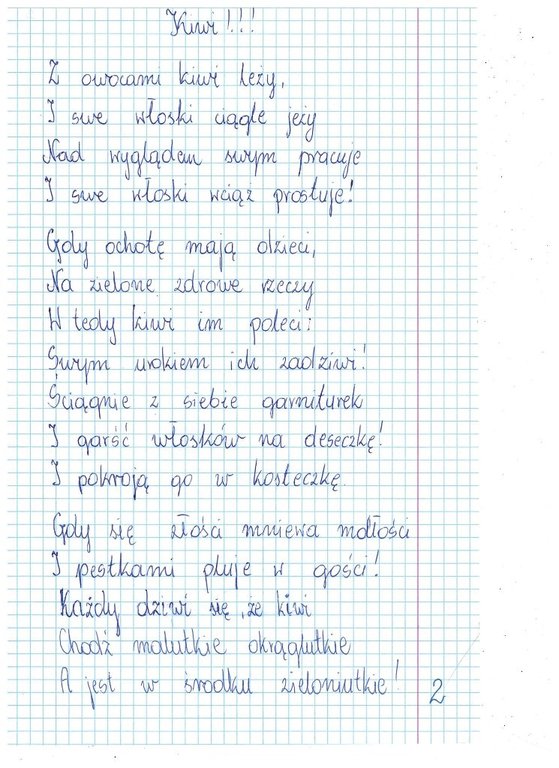 Kiwi!!!
Z owocami kiwi leży,
I swe włoski ciągle jeży
Nad wyglądem swym pracuje
I swe włoski wciąż prostuje!
Gdy ochotę mają dzieci,
Na zielone zdrowe rzeczy
W tedy kiwi im poleci:
Swym urokiem ich zadziwi!
Ściągnie z siebie garniturek
I garść włosków na deseczkę!
I pokroją go w kosteczkę.
Gdy się złości mniewa mdłości
I pestkami pluje w gości!
Każdy dziwi się, że kiwi
Chodź malutkie okrąglutkie
A jest w środku zieloniutkie!
2